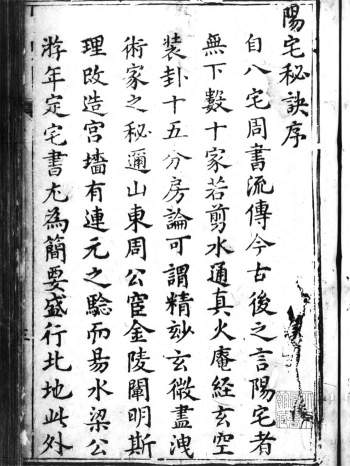 陽宅秘訣序
自八宅周書流傳今古後之言陽宅者
無下數十家若剪水通真火庵経玄空
装卦十五分房論可謂精玅玄微盡洩
術家之秘邇山東周公宦金陵闡明斯
理改造宮墻有連元之騐而昜水梁公
游年定宅書尤為簡要盛行北地此外